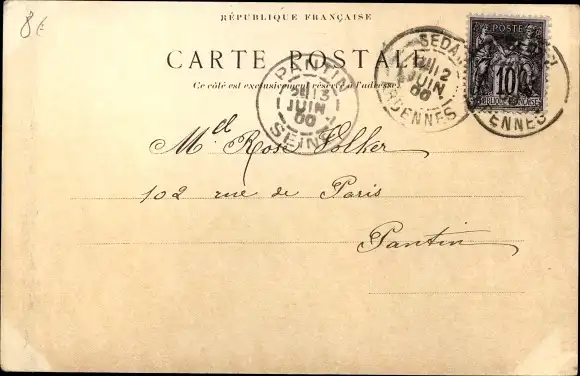 8€
RÉPUBLIQUE FRANÇAISE
CARTE POSTALE
Ce côté est exclusivement réservé à l'adresse
PANTIN
13
JUIN
00
SEINE
SEDAN
12
JUIN
00
ARDENNES
POSTE
10
RÉPUBLIQUE FRANÇAISE
SEDAN
ENNES
Mell Rose Folker
102 rue de Paris
Pantin